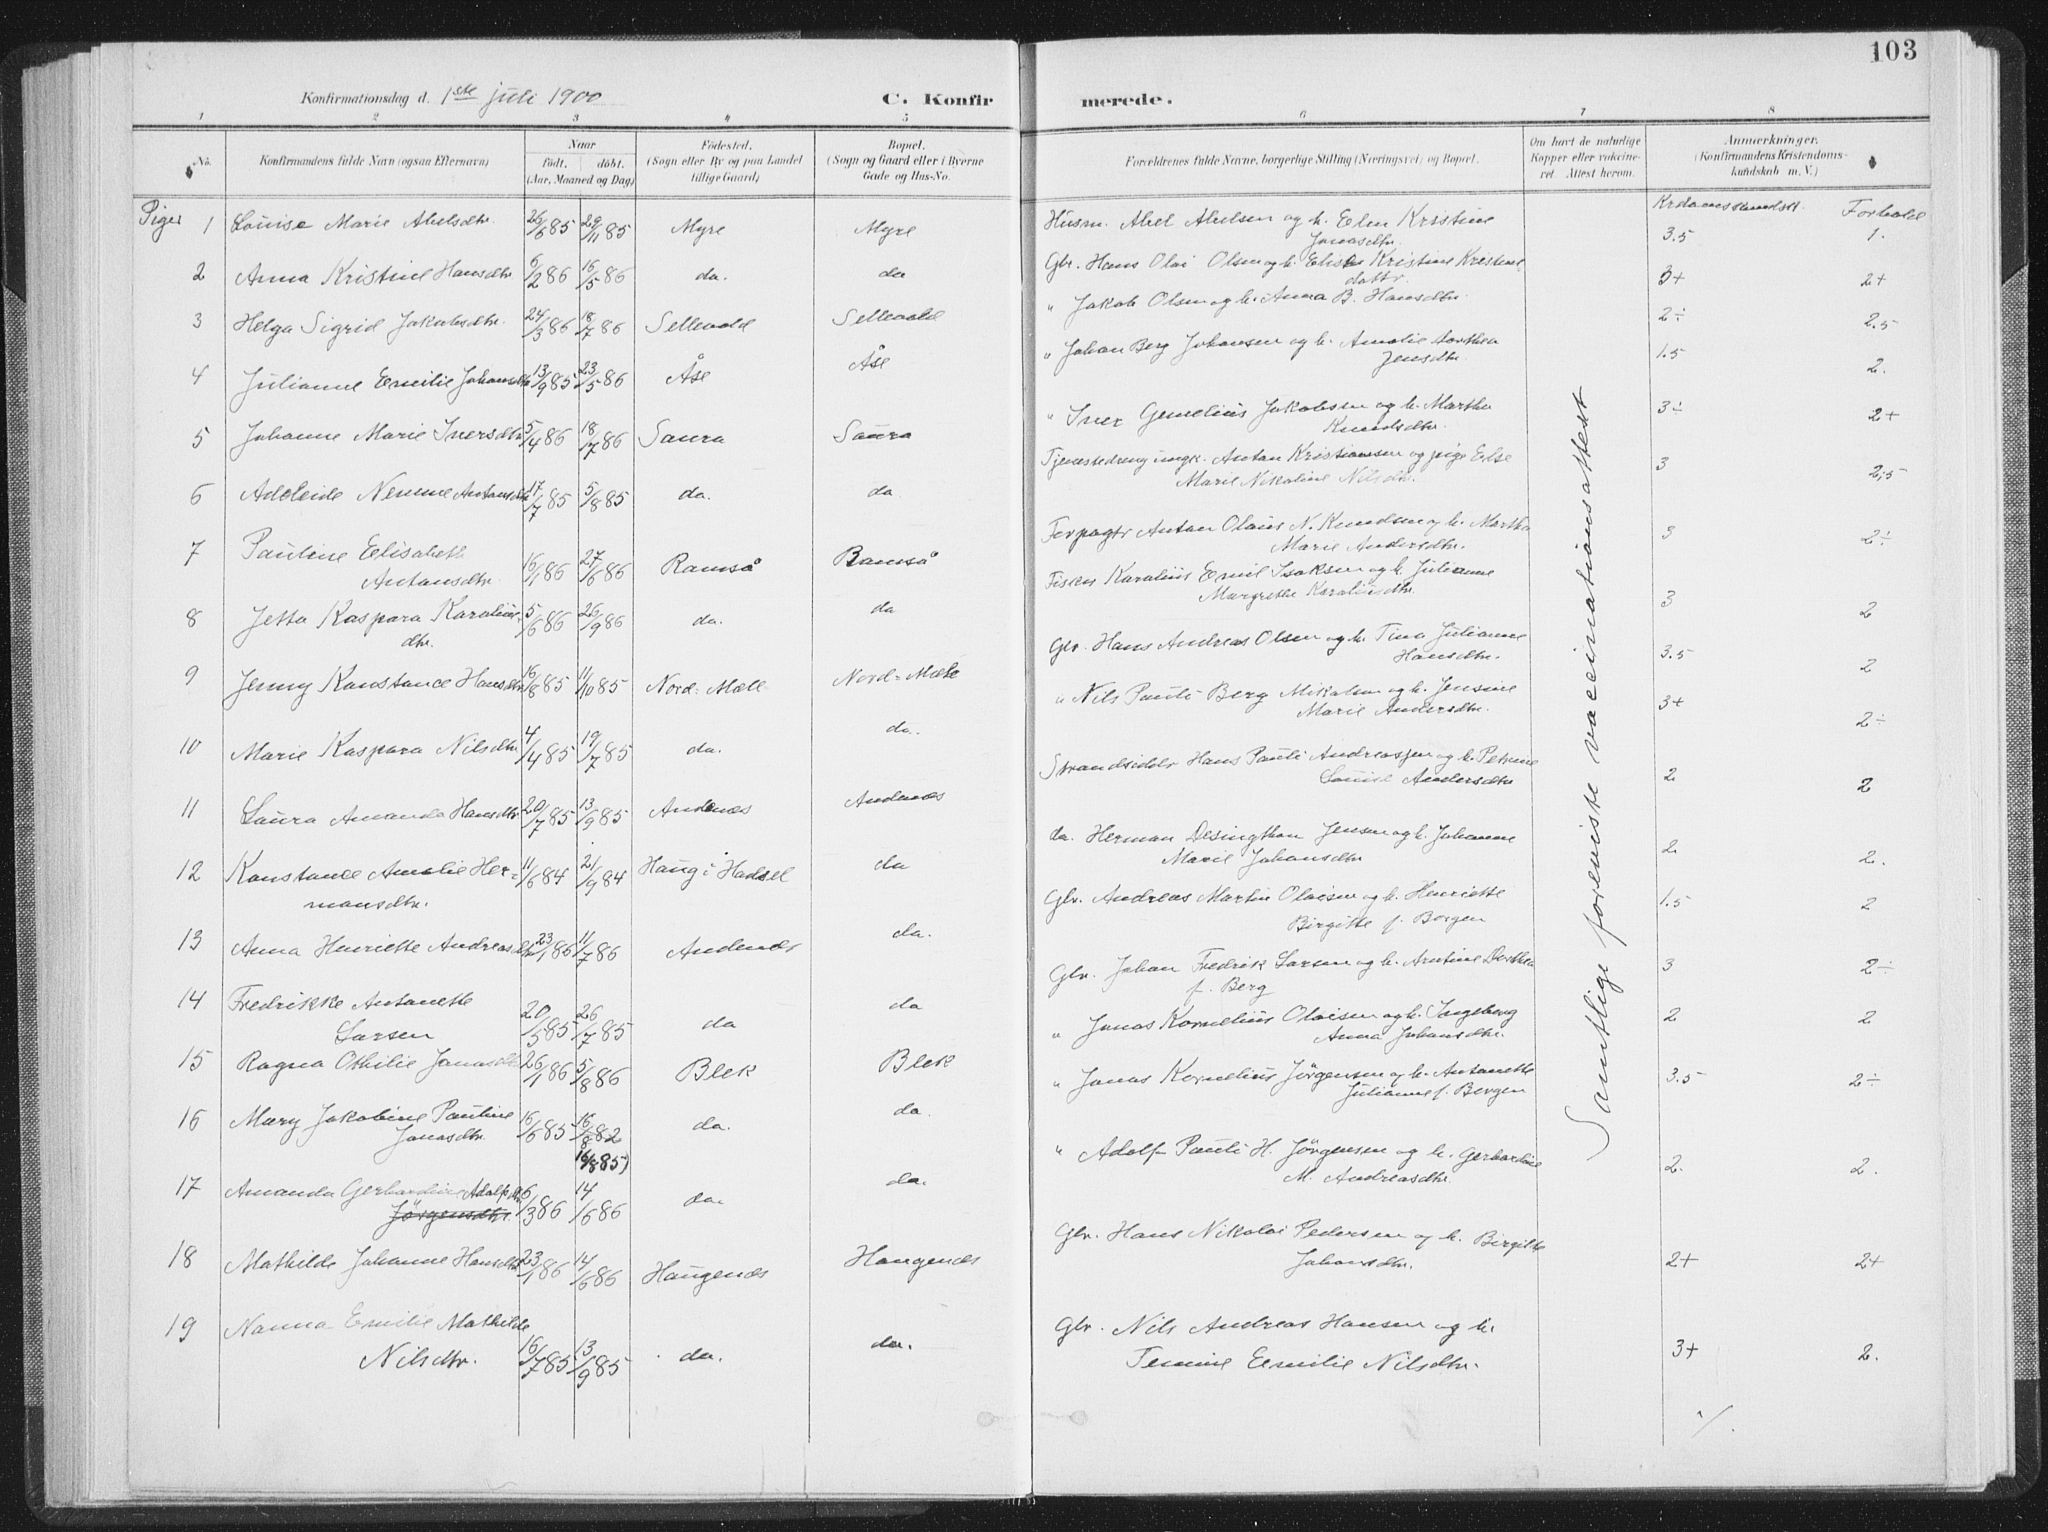 103
Konfirmationsdag d. 1ste juli 1900
C. Konfirmerede.
1 2 3 4 5 6 7 8
No.
Konfirmandens fulde Navn (ogsaa Efternavn)
Naar født. døbt. (Aar, Maaned og Dag)
Fødested. (Sogn eller By og paa Landet tillige Gaard)
Bopæl. (Sogn og Gaard eller i Byerne Gade og Hus-No.
Forældrenes fulde Navne, borgerlige Stilling (Næringsvei) og Bopæl.
Om havt de naturlige Kopper eller vaccineret. Attest herom.
Anmærkninger. (Konfirmandens Kristendomskundskab m. V.)
Piger
Krdomskundsk. Forhold
1 Louise Marie Abelsdtr. 26/6 85 29/11 85 Myre Myre Husm. Abel Abelsen og h. Elen Kristine Jonasdtr. 3.5 1.
2 Anna Kristine Hansdtr 6/2 86 16/5 86 do. do Gbr. Hans Olai Olsen og h. Kristine 3+ 2+
3 Helga Sigrid Jakobsdtr. 24/3 86 18/7 86 Sellevold Sellevold " Jakob Olsen og h. Anna B. Hansdtr. 2÷ 2.5
4 Julianne Emilie Johansdtr 13/9 85 23/5 86 Åse Åse " Johan Berg Johansen og h. Amalie Dorthea Jensdtr. 1.5 2.
5 Johanne Marie Iversdtr 5/4 86 18/7 86 Saura Saura " Iver Jakobsen og h. Martha Knudsdtr. 3÷ 2+
6 Adeleide Antonsdtr 17/7 85 5/8 85 do. do. Tjenestedreng ungk. Anton Kristiansen og pige Else Marie Nikoline Nilsdtr. 3 2,5
7 Pauline Elisabeth Antonsdtr. 16/1 86 27/6 86 Ramså Ramså Forpagtr Anton Olaus N. Knudsen og h. Martha Marie Andersdtr. 3 2÷
8 Jetta Kaspara Karoliusdtr. 5/6 86 26/9 86 do. do Fisker Karolius Emil Isaksen og h. Julianne Margrethe Karoliusdtr. 3 2
9 Jenny Konstance Hansdtr 16/8 85 11/10 85 Nord-Mæle Nord-Mæle Gbr. Hans Andreas Olsen og h. Tina Julianne Hansdtr. 3.5 2
10 Marie Kaspara Nilsdtr 4/4 85 19/7 85 do. do. " Nils Pauli Berg Mikalsen og h. Jensine Marie Andersdtr. 3+ 2÷
11 Laura Amanda Hansdtr 20/7 85 13/9 85 Andenæs Andenæs Strandsidder Hans Pauli Andreassen og h. Petrine Louise Andersdtr 2 2
12 Konstance Amalie Hermansdtr. 11/6 84 21/9 84 Haug i Hadsel do do. Herman Desingthon Jensen og h. Johanne Marie Johansdtr 2 2.
13 Anna Henriette Andreasdtr 23/1 86 11/7 86 Andenæs do. Gbr. Andreas Martin Olaisen og h. Henriette Birgitte f. Borgen 1.5 2
14 Fredrikke Antonette Larsen 20/5 85 26/7 85 do do Gbr. Johan Fredrik Larsen og h. Arntine Dorthea f. Berg 3 2÷
15 Ragna Othilie Jonasdtr 26/1 86 5/8 86 Blek Blek " Jonas Kornelius Olaisen og h. Ingeborg Anna Johansdtr. 2 2
16 Mary Jakobine Pauline Jonasdtr. 16/6 85 16/8 82 16/8 85) do. do. " Jonas Kornelius Jörgensen og h. Antonette Julianne f. Borgen 3.5 2÷
17 Amanda Gerhardine Adolfsdtr Jörgensdtr. 6/3 86 14/6 86 do. do. " Adolf Pauli H. Jörgensen og h. Gerhardine M. Andreasdtr. 2. 2.
18 Mathilde Johanne Hansdtr 23/1 86 14/6 86 Haugenæs Haugenæs Gbr. Hans Nikolai Pedersen og h. Birgitte Johansdtr. 2+ 2+
19 Nanna Emilie Mathilde Nilsdtr. 16/7 85 13/9 85 do. do. Gbr. Nils Andreas Hansen og h. Emilie Nilsdtr. 3+ 2.
Samtlige foreviste vaccinationsattest